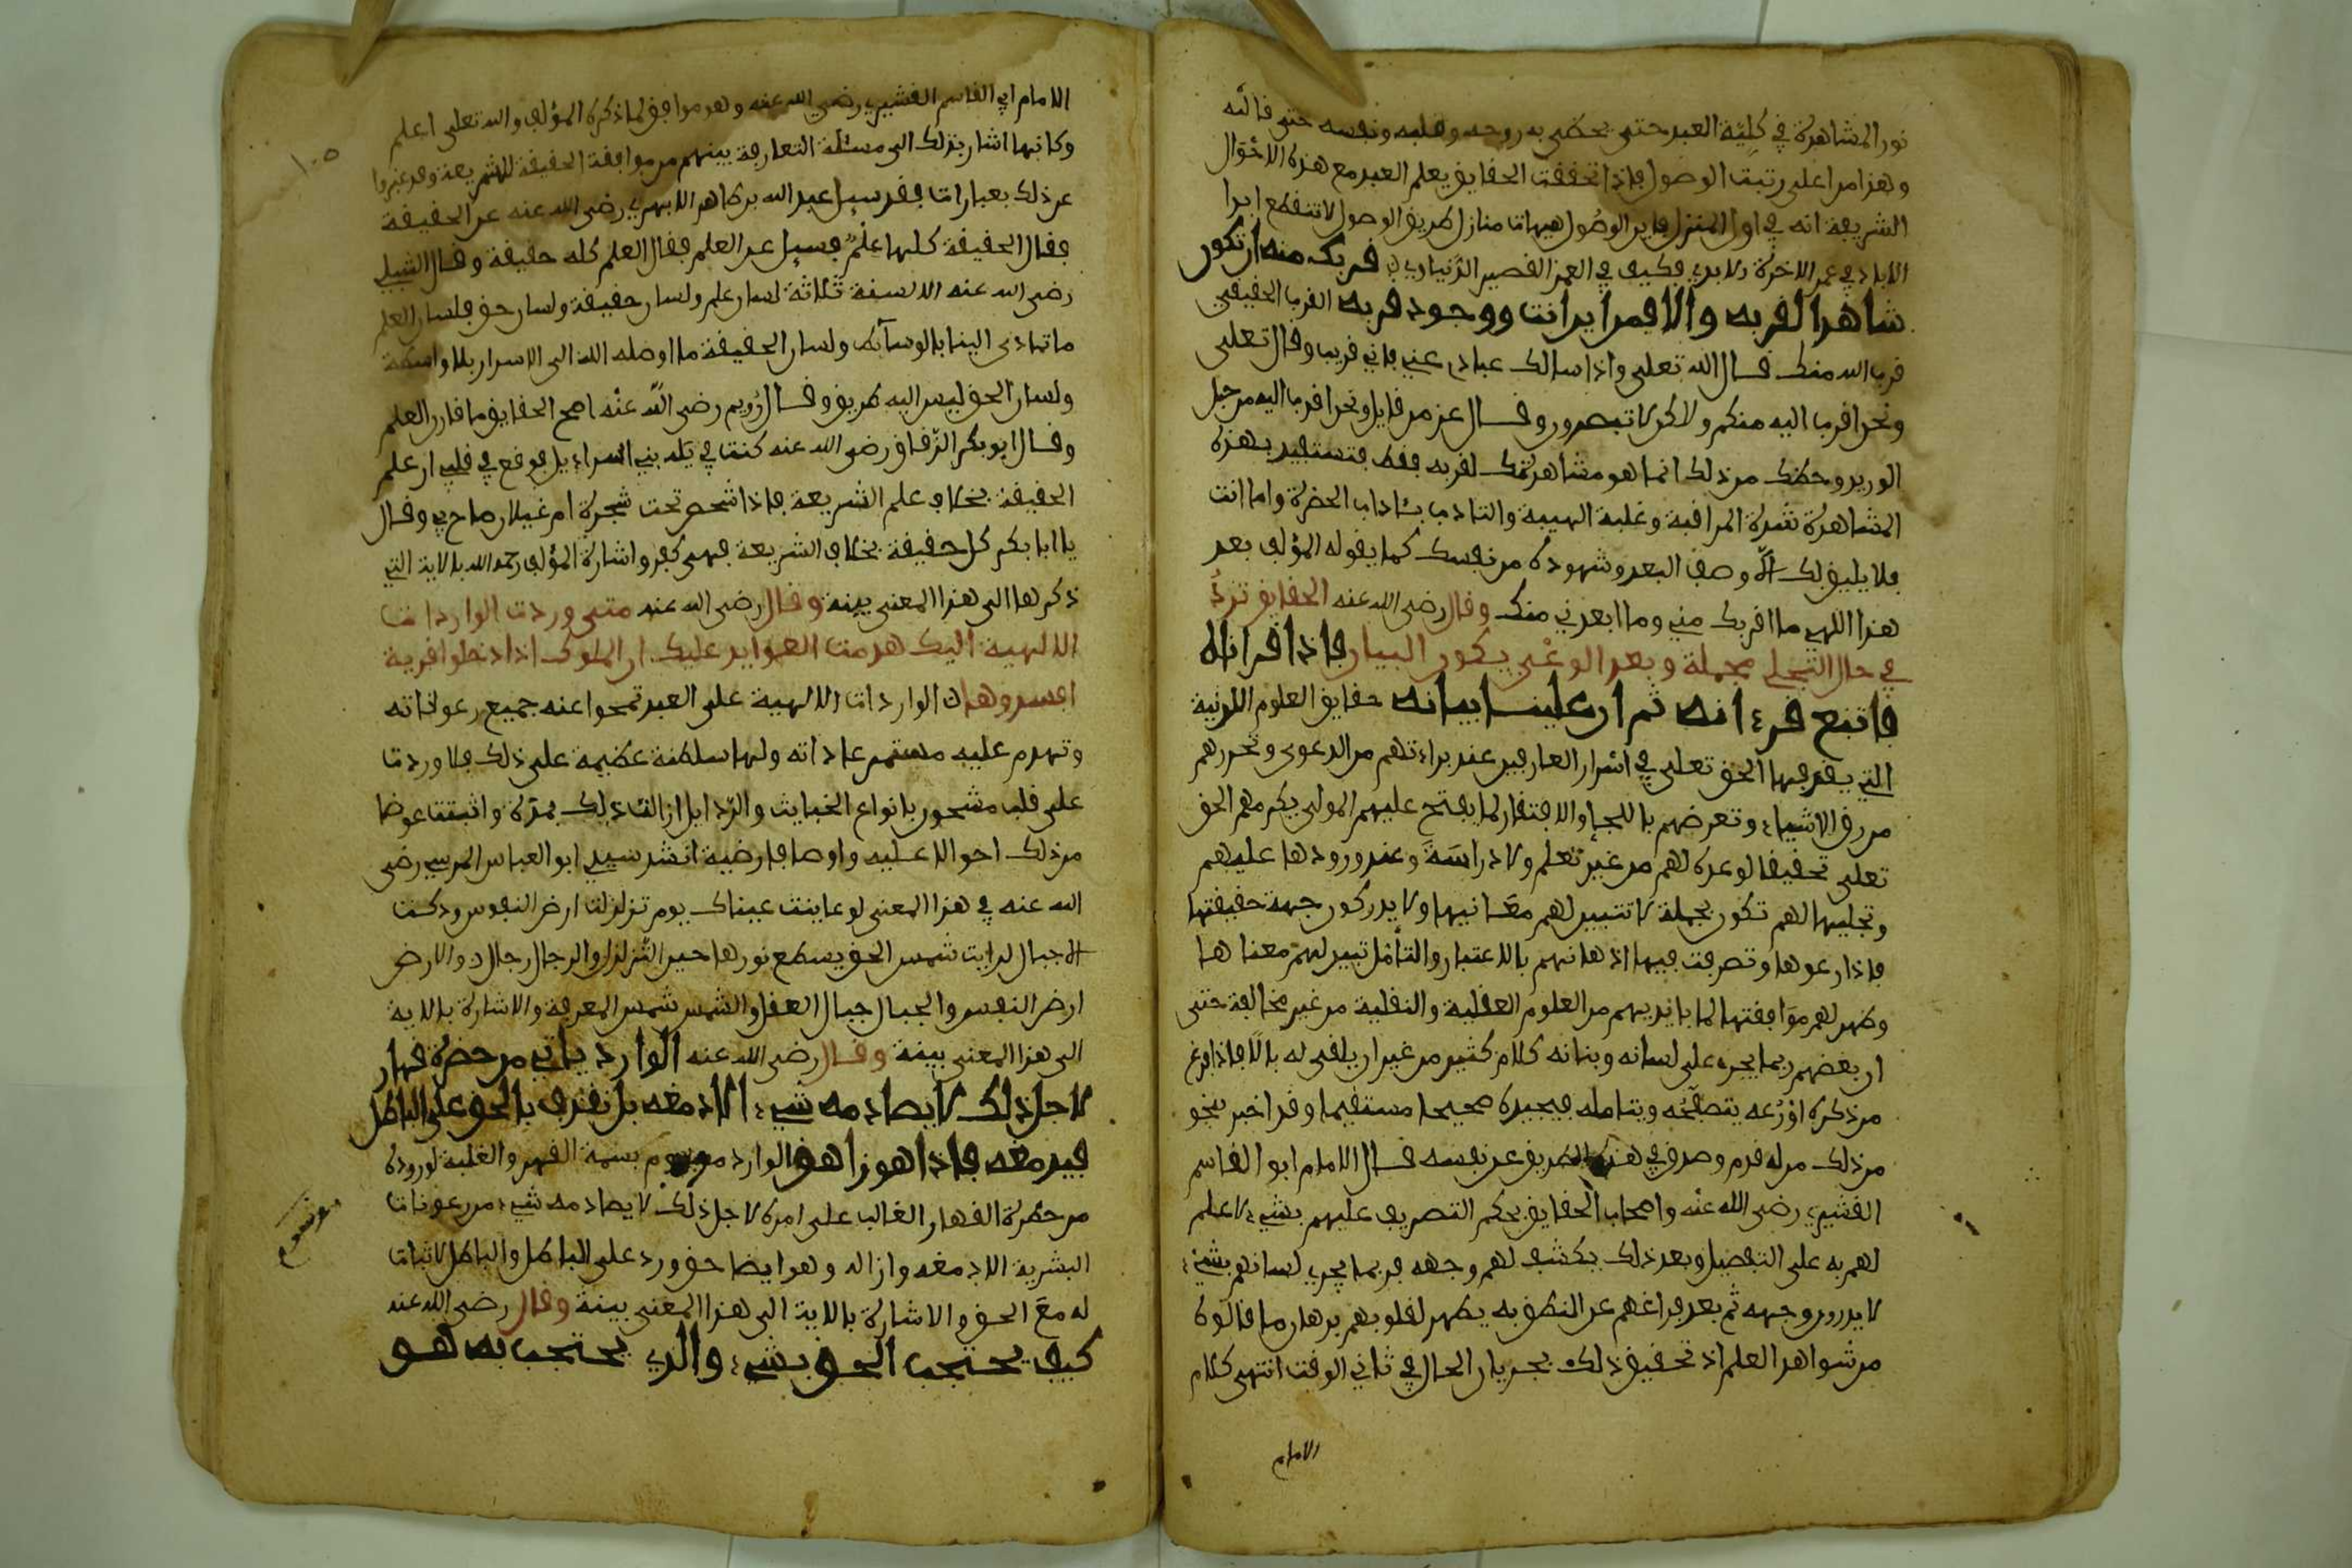 نور المشاهدة في كلية العبد حتى يحضى به روحه وقلبه ونفسه حتى قالبه
وهذا من اعلى رتبت الوصول فاذا تحققت الحقايق يعلم العبد مع هذه الاحوال
الشريفة انه في اول المنزل فاين الوصول هيهات منازل طريق الوصول لا تنقطع ابدا
الاباد في عمر الاخرة الابدي فكيف في العمر القصير الدنياوي قربك منه ان تكون
شاهدا لقربه والا فمن اين انت ووجود قربه القرب الحقيقي
قرب الله منك قال الله تعلى واذا سالك عبادي عني فاني قريب وقال تعلى
ونحن اقرب اليه منكم ولاكن لا تبصرون وقال عز من قايل ونحن اقرب اليه من حبل
الوريد وحظك من ذلك انما هو مشاهدتك لقربه فقط فتستفيد بهذه
المشاهدة شدة المراقبة وغلبة الهيبة والتادب بئاداب الحضرة واما انت
فلا يليق بك الا وصف البعد وشهوده من نفسك كما يقوله المؤلف بعد
هذا اللهي ما اقربك مني وما ابعدني منك وقال رضى الله عنه الحقايق تردُ
في حال التجلي مجملة وبعد الوعْي يكون البيان فاذا قراناه
فاتبع قرءانه ثم ان علينا بيانه حقايق العلوم اللدنية
التي يقذفها الحق تعلى في اسرار العارفين عند براءتهم من الدعوى وتحررهم
من رق الاشياء وتعرضهم باللجإ والافتقار لما يفتح عليهم المولى يكرمهم الحق
تعلى تحقيقا لوعده لهم من غير تعلم ولا دراسَةَ وعند ورودها عليهم
وتجليها لهم تكون مجملة لا تتبين لهم معَانيها ولا يدركون جهة حقيقتها
فاذا رعوها وتصرفت فيها اذهانهم بالاعتبار والتأمل تبين لهم معناها
وظهر لهم موَافقتها لما بايديهم من العلوم العقلية والنقلية من غير مخالفة حتى
ان بعضهم ربما يجري على لسانه وبنانه كلام كثير من غير ان يلقى له بالًا فاذا فرغ
من ذكره اوْرَعه يتصفحُه ويتامله فيجده صحيحا مستقيما وقد اخبر بنحو
من ذلك من له قدم وصدق في هذه الطريق عن نفسه قال الامام ابو القاسم
القشيري رضى الله عنه واصحاب الحقايق بحكم التصريف عليهم بشيء لا علم
لهم به على التفصيل وبعد ذلك يكشف لهم وجهه فربما يجري لسانهم بشيء
لا يدرون وجهه ثم بعد فراغهم عن النطق به يظهر لقلوبهم برهان ما قالوه
من شواهد العلم اذ تحقيق ذلك بجريان الحال في ثاني الوقت انتهى كلام
الامام
الامام ابي القاسم القشيري رضى الله عنه وهو موافق لما ذكره المؤلف والله تعلى اعلم
١٠٥
وكانها اشار بذلك الى مسئلة التعارفة بينهم من موافقة الحقيقة للشريعة وقد عبروا
عن ذلك بعبارات فقد سيل عبد الله بن طاهر الابهري رضى الله عنه عن الحقيقة
فقال الحقيقة كلها علمٌ فسيل عن العلم فقال العلم كله حقيقة وقال الشبلي
رضى الله عنه الالسنة ثلاثة لسان علم ولسان حقيقة ولسان حق فلسان العلم
ما تادى الينا بالوسآئط ولسان الحقيقة ما اوصله الله الى الاسرار بلا واسطة
ولسان الحق ليس اليه طريق وقال رُويم رضى اللّه عنْه اصح الحقايق ما قارن العلم
وقال ابو بكر الزقاق رضى الله عنه كنت في تيه بني اسراءيل فوقع في قلبي ان علم
الحقيقة بخلاف علم الشريعة فاذا شخص تحت شجرة ام غيلان صاح بي وقال
يا ابا بكر كل حقيقة بخلاف الشريعة فهى كفر واشارة المؤلف رحمه الله بالاية التي
ذكرها الى هذا المعنى بينة وقال رضى الله عنه متى وردت الواردات
الالهية اليك هدمت العوايد عليك ان الملوك اذا دخلوا قرية
افسدوها ان الواردات الالهية على العبد تمحوا عنه جميع رعوناته
وتهدم عليه مستمر عاداته ولها سلطنة عظيمة على ذلك فلا وردت
على قلب مشحون بانواع الخبايث والرذايل ازالت ذلك بمرة واثبتت عوضا
من ذلك احوالا علية واوصافا رضية انشد سيدي ابو العباس المرسي رضى
الله عنه في هذا المعنى لو عاينت عيناك يوم تزلزلت ارض النفوس ودكت
الاجبال لرايت شمس الحق يسطع نورها حين التزلزل والرجال رجال والارض
ارض النفس والجبال جبال العقل والشمس شمس المعرفة والاشارة بالاية
الى هذا المعنى بينة وقال رضى الله عنه الوارد ياتي من حضرة قهار
لاجل ذلك لا يصادمه شيء الا دمغه بل نقذف بالحق على الباطل
فيدمغه فاذا هو زاهق الوارد موسوم بسمة القهر والغلبة لوروده
موسوم
من حضرة القهار الغالب على امره لاجل ذلك لا يصادمه شيء من رعونات
البشرية الا دمغه وازاله وهو ايضا حق ورد على الباطل والباطل لا ثبات
له معَ الحق والاشارة بالاية الى هذا المعنى بينة وقال رضى الله عنه
كيف يحتجب الحق بشيء والذي يحتجب به هو